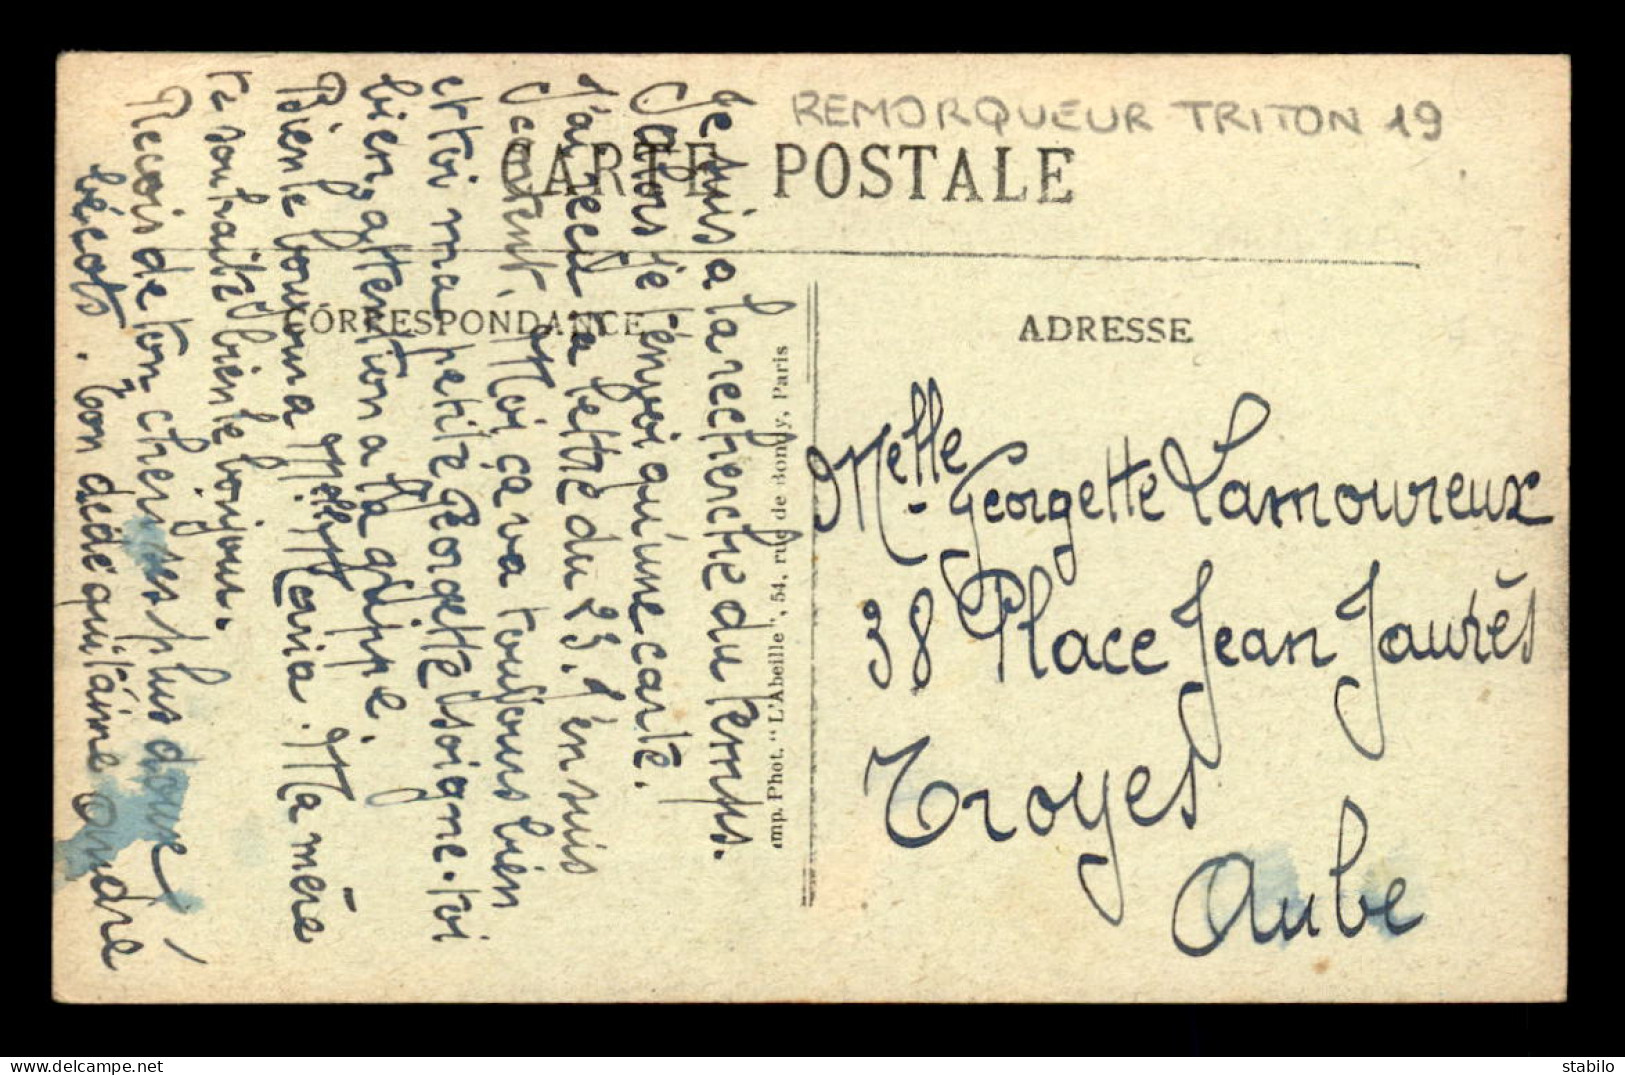 REMORQUEUR TRITON 19
CARTE POSTALE
CORRESPONDANCE
ADRESSE
Je suis a la recherche du temps.
Alors je t'envoi qu'une carte.
J'ai reçu ta lettre du 23. J'en suis
content. Moi ça va toujours bien
et toi ma petite Georgette soigne-toi
bien, attention a la grippe.
Bien le boujour a Melle Maria. Ma mère
te souhaite bien le bonjour.
Recois de ton cheri ses plus doux
bécots. Ton dédé qui t'aime André
Imp. Phot. "L'Abeille", 54, rue de Bondy, Paris
Melle Georgette Lamoureux
38 Place Jean Jaurès
Troyes
Aube
stabilo
delcampe.net